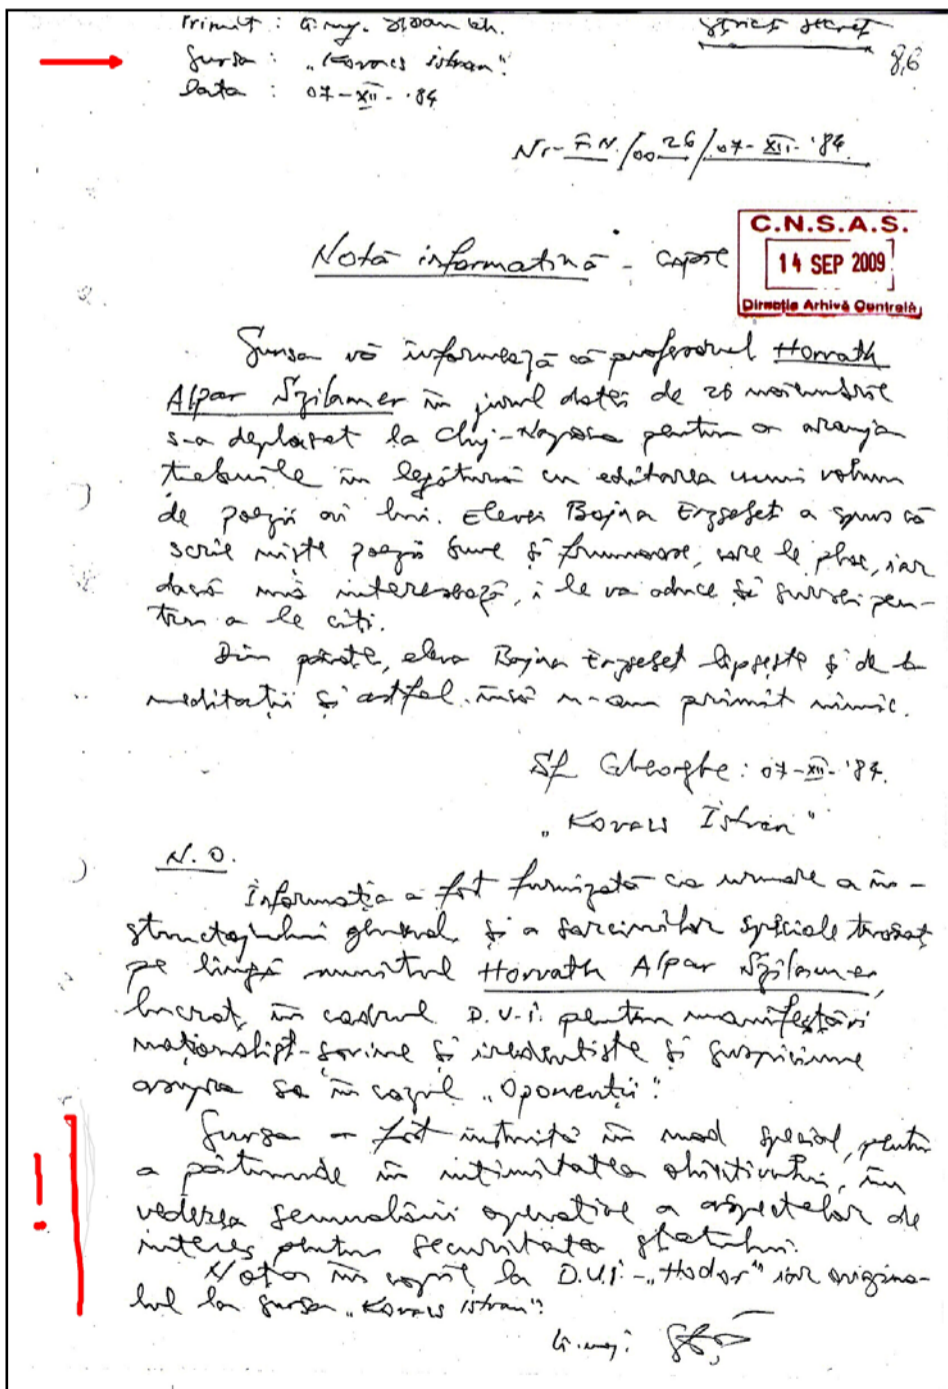 Primit : Lt. maj.
Strict secret
Sursa : „Kovacs istvan”.
8,6
Data : 07-XII-'84
Nr- F.N./0026/07-XII-'84.
Notă informativă - copie
C.N.S.A.S.
14 SEP 2009
Direcția Arhivă Centrală
Sursa vă informează că profesorul Horvath
Alpar Szilamer în jurul datei de 26 noiembrie
s-a deplasat la Cluj-Napoca pentru a aranja
treburile în legătură cu editarea unui volum
de poezii ai lui. Elevei Bojna Erzsebet a spus că
scrie niște poezii bune și frumoase, care le plac, iar
dacă mă interesează, i le va aduce și sursei pen-
tru a le citi.
Din păcate, eleva Bojna Erzsebet lipsește și de la
meditații și astfel însă n-am primit nimic.
Sf. Gheorghe : 07-XII-'84.
„Kovacs Istvan”
N.O.
Informația a fost furnizată ca urmare a in-
structajului general și a sarcinilor speciale trasate
pe lîngă numitul Horvath Alpar Szilamer,
lucrat în cadrul D.U.I. pentru manifestări
naționalist-șovine și iredentiste și suspiciune
asupra sa în cazul „Oponenții”.
Sursa a fost instruită în mod special, pentru
a pătrunde în intimitatea obiectivului, în
vederea semnalării operative a aspectelor de
interes pentru securitatea statului.
Nota în copie la D.U.I.-„Hodor” iar origina-
lul la sursa „Kovacs istvan”.
Lt. maj.